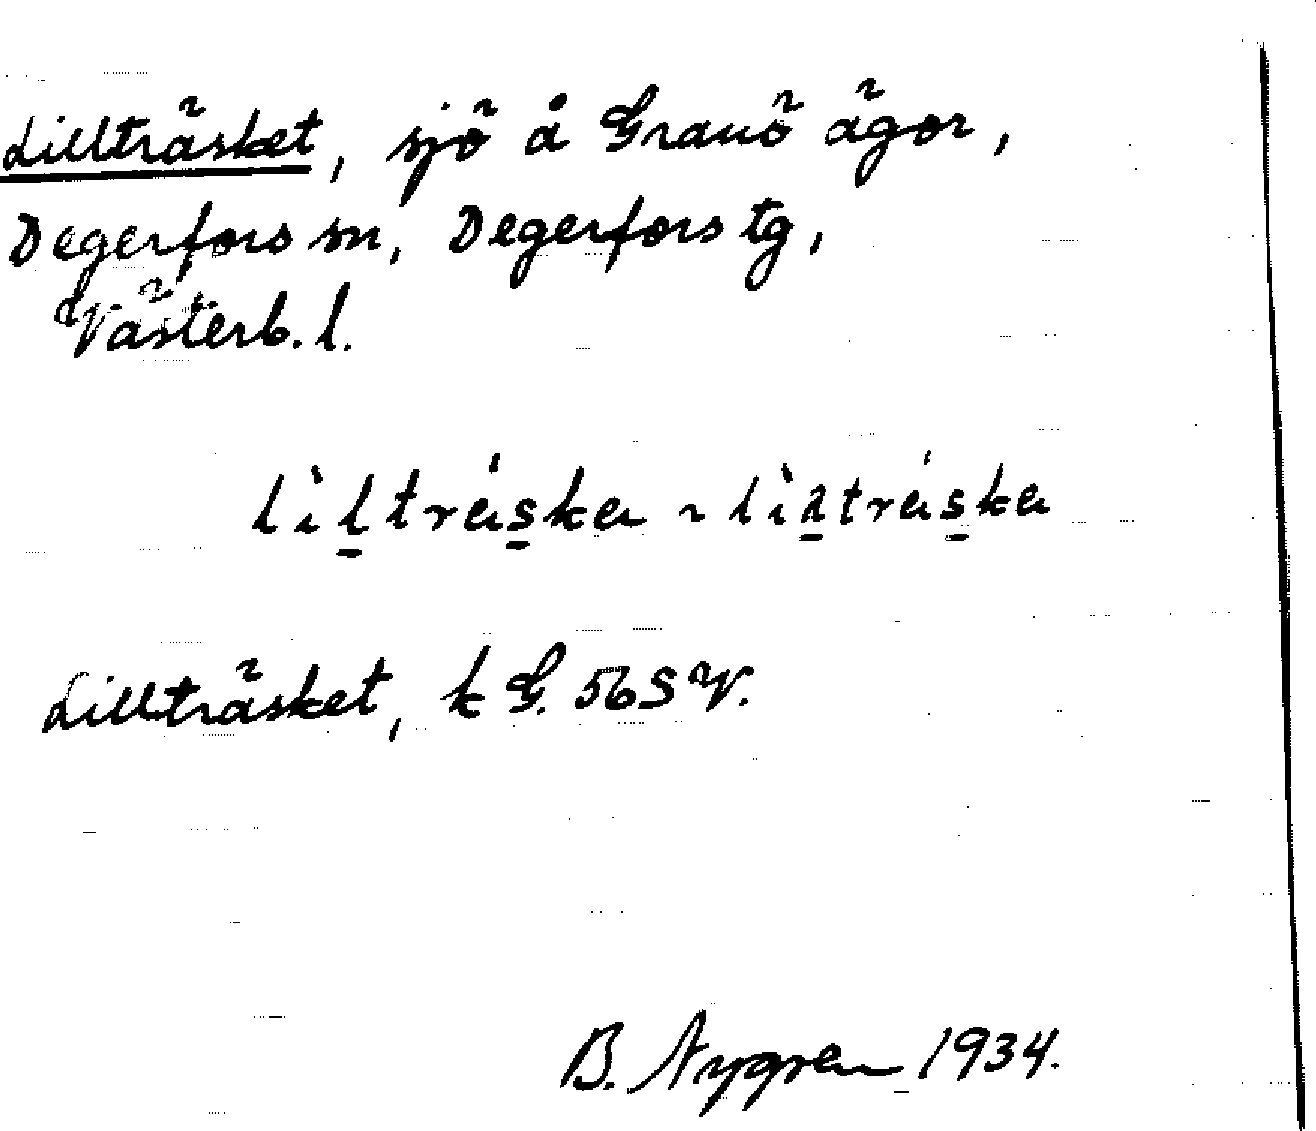 Lillträsket, sjö å Granö ägor,
Degerfors sn, Degerfors tg,
Västerb. l.
Lillträsket, k G. 56 S V.
B. Nygren 1934.